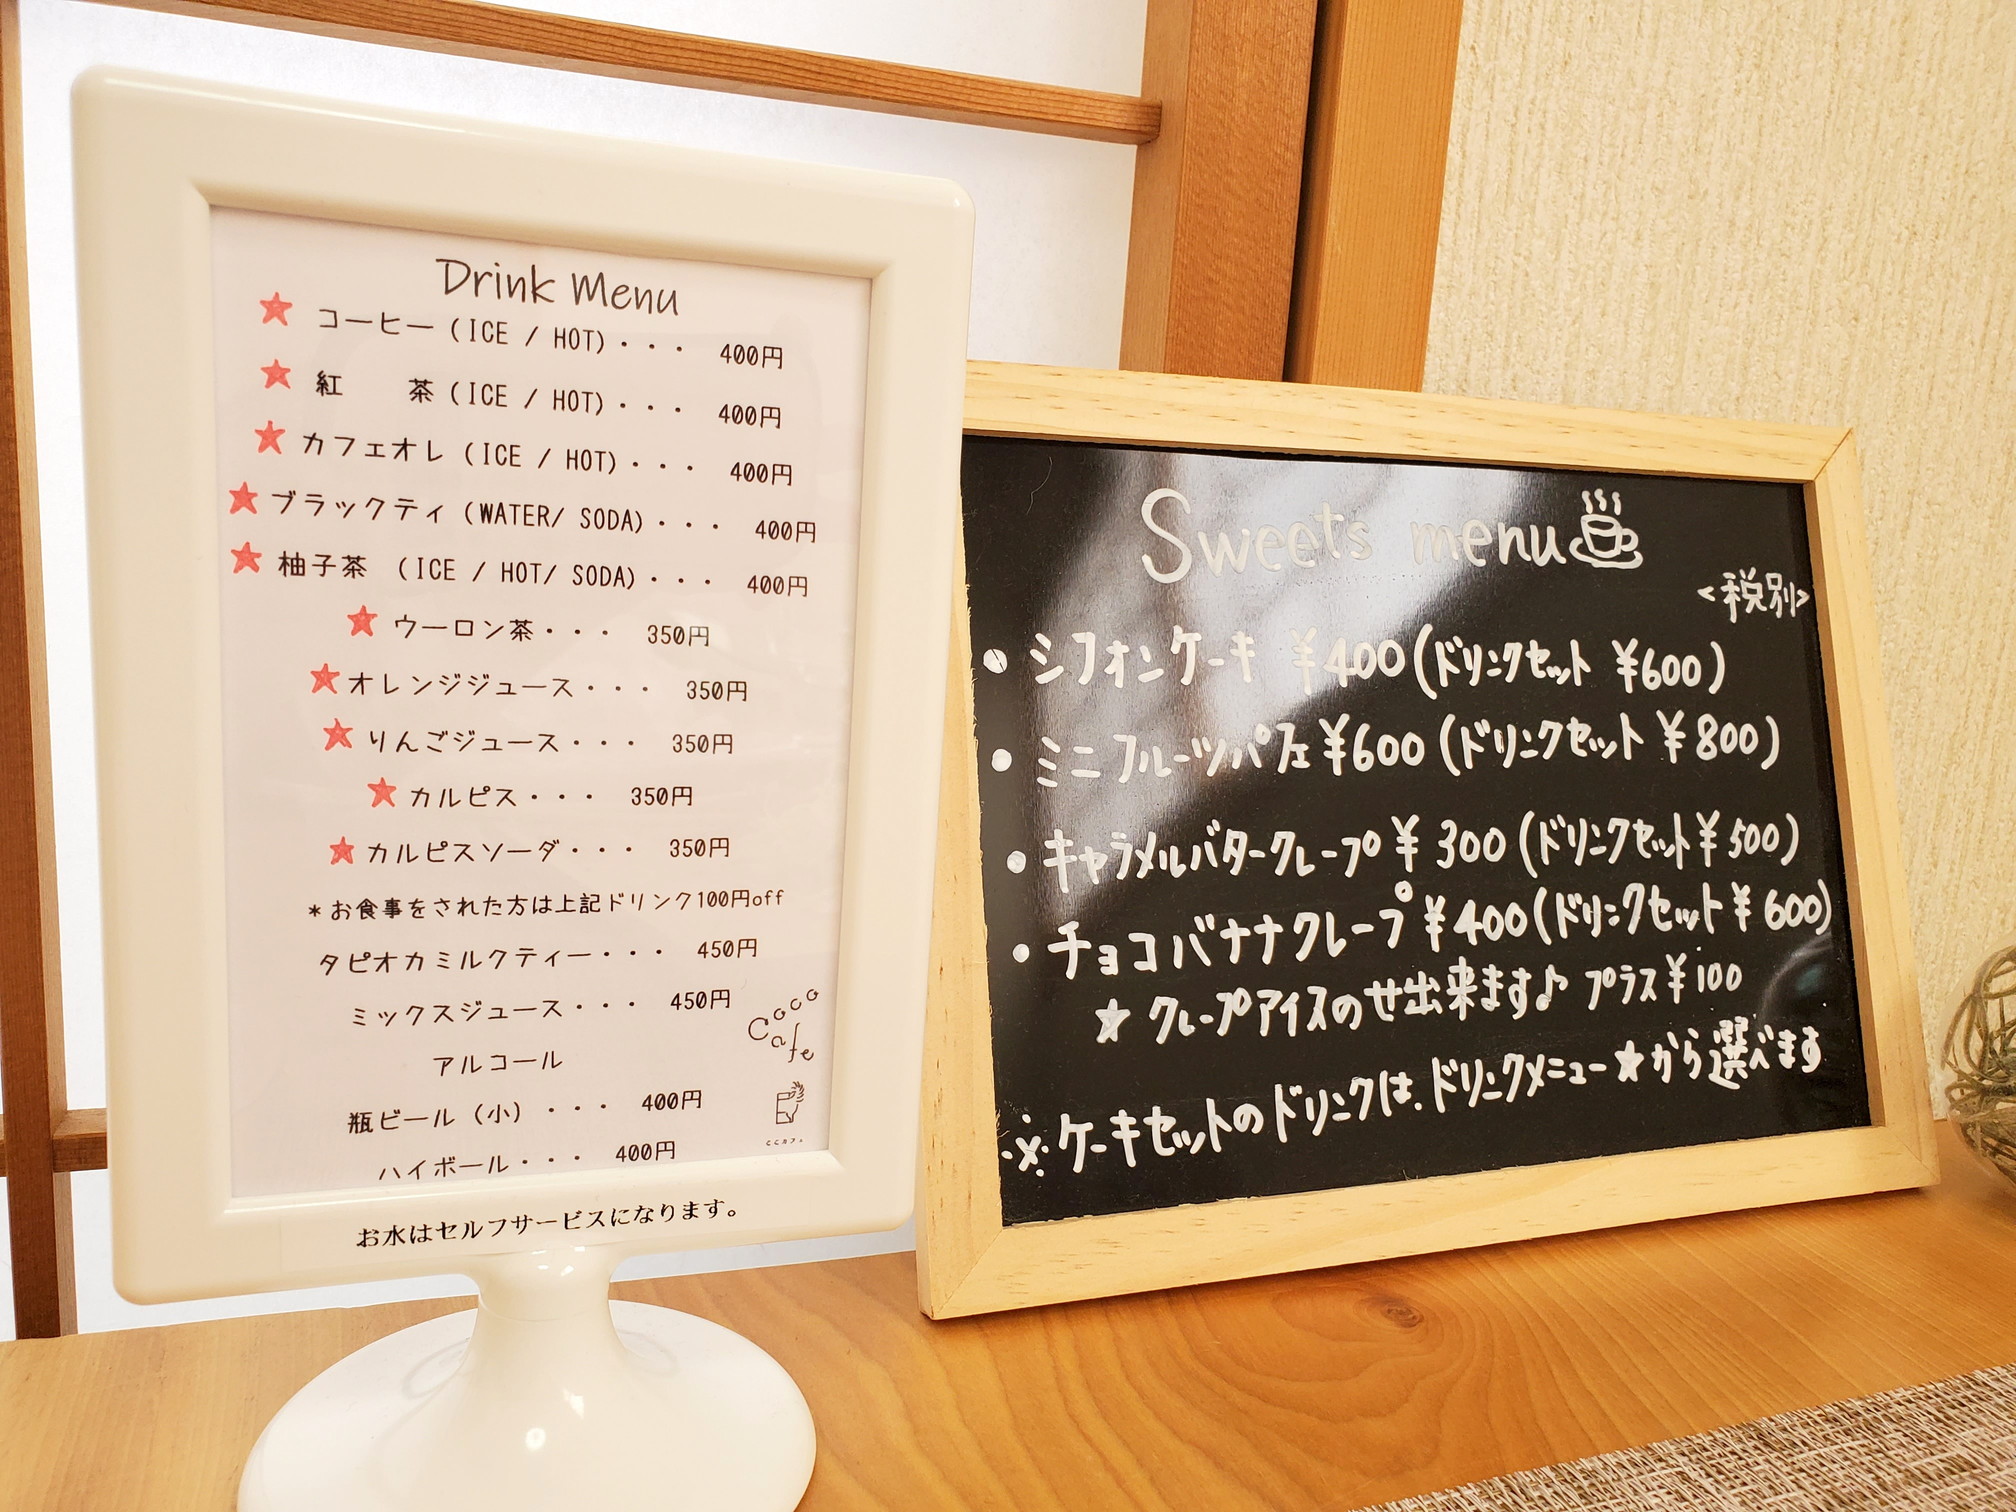 Drink Menu
★ コーヒー (ICE / HOT)・・・ 400円
★ 紅　茶 (ICE / HOT)・・・ 400円
★ カフェオレ (ICE / HOT)・・・ 400円
★ ブラックティ (WATER/ SODA)・・・ 400円
★ 柚子茶 (ICE / HOT/ SODA)・・・ 400円
★ ウーロン茶・・・ 350円
★ オレンジジュース・・・ 350円
★ りんごジュース・・・ 350円
★ カルピス・・・ 350円
★ カルピスソーダ・・・ 350円
*お食事をされた方は上記ドリンク100円off
タピオカミルクティー・・・ 450円
ミックスジュース・・・ 450円
アルコール
瓶ビール (小) ・・・ 400円
ハイボール・・・ 400円
Coco
Cafe
ここカフェ
お水はセルフサービスになります。
Sweets menu
<税別>
・シフォンケーキ ¥400(ドリンクセット ¥600)
・ミニフルーツパフェ ¥600 (ドリンクセット ¥800)
・キャラメルバタークレープ ¥300 (ドリンクセット ¥500)
・チョコバナナクレープ ¥400 (ドリンクセット ¥600)
★クレープアイスのせ出来ます♪ プラス¥100
※ケーキセットのドリンクは、ドリンクメニュー★から選べます